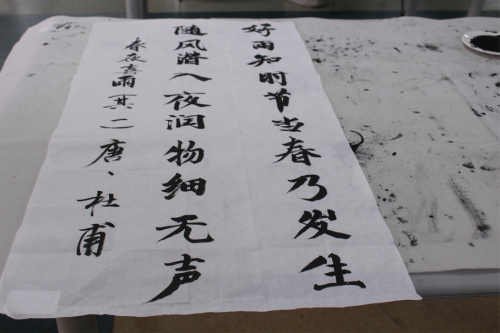 好雨知时节当春乃发生
随风潜入夜润物细无声
春夜喜雨其二唐、杜甫